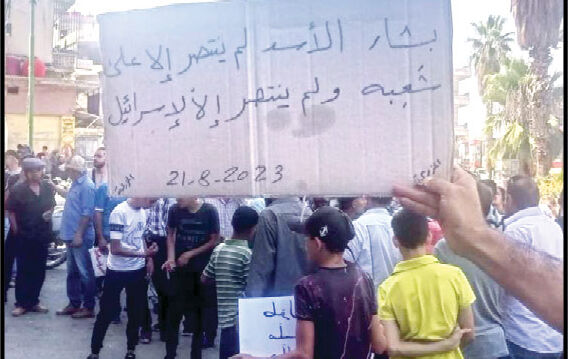 بشار الأسد لم ينتصر إلا على
شعبه ولم ينتصر إلا لإسرائيل
21-8-2023